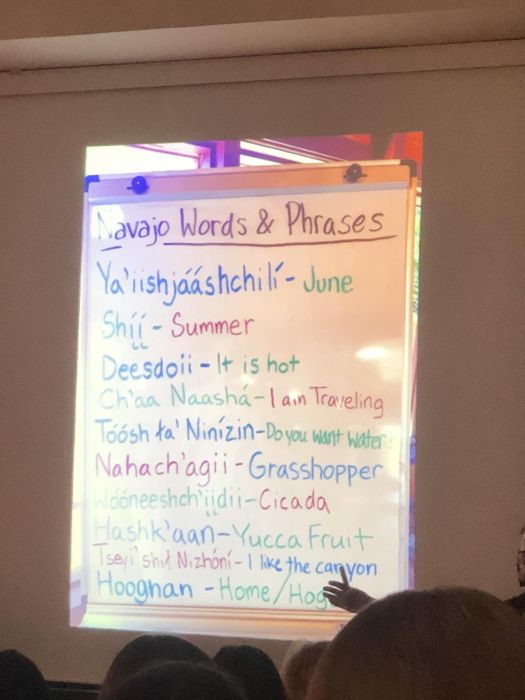 Navajo Words & Phrases
Ya'iishjááshchilí - June
Shį́į́ - Summer
Deesdoii - It is hot
Ch'aa Naashá - I am Traveling
Tóósh ła' Ninízin - Do you want water
Nahach'agii - Grasshopper
Wóóneeshch'įįdii - Cicada
Hashk'aan - Yucca Fruit
Tseyi' shił Nizhóní - I like the canyon
Hooghan - Home /